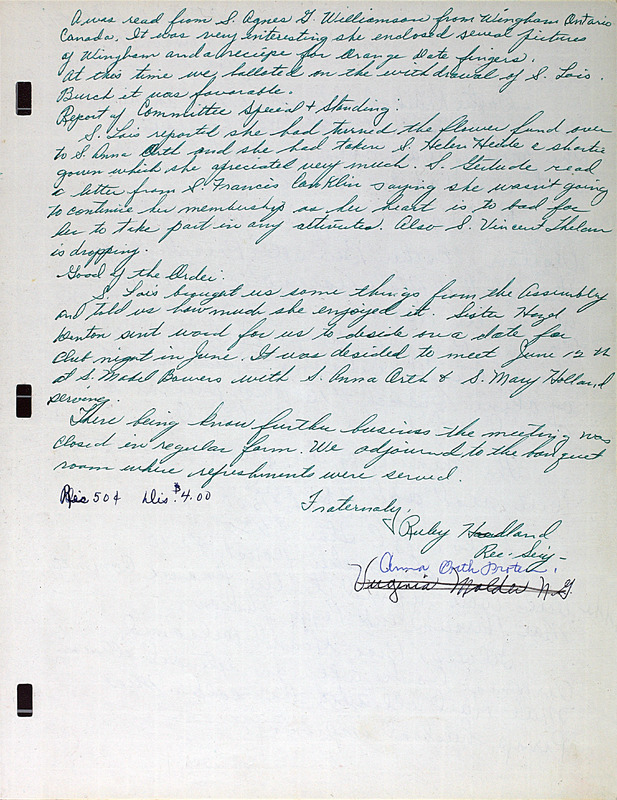 A was read from S. Agnes G. Williamson from Wingham Ontario
Canada. It was very interesting she enclosed seveal pictures
of Wingham and a reciepe for Orange Date fingers.
At this time we balloted on the withdrawal of S. Lois
Burch it was favorable.
Report of Committee Special + Standing:
S. Lois reported she had turned the flower fund over
to S. Anna Orth and she had taken S. Helen a shortie
gown which she apreciated very much. S. Gertude read
a letter from S. Francis Conklin saying she wasn't going
to continue her membership as her heart is to bad for
her to take part in any attivities. Also S. Vincent
is dropping.
Good of the Order:
S. Lois brought us some things from the Assembly
and told us how much she enjoyed it. Sister Hazel
Benton sent word for us to deside on a date for
Club night in June. It was decided to meet June 12 th
at S. Mabel Bowers with S. Anna Orth & S. Mary Holland
serving.
There being know further business the meeting was
closed in regular form. We adjourned to the banquet
room where refreshments were served.
Rec 50¢ Dis. $4.00
Fraternaly,
Ruby
Rec. Secy-
Anna Orth Protem.
Virginia Malder N.G.